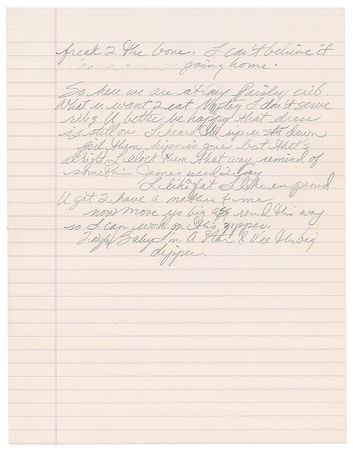 freak 2 the bone. I can't believe it
going home.
So here we are at my Paisley crib.
What u want 2 eat I don't serve
ribz U better be happy that dress
is still on. I heard the rip u sit down
girl them hips is gone but that's
alright I clock 'em that way remind of
somethin James used 2 say
I like 'em fat I like 'em proud
U got 2 have a mother 4 me
now move yo big a$$ round this way
so I can work on this zipper.
2night Baby I'm A Star & U're the big
dipper.